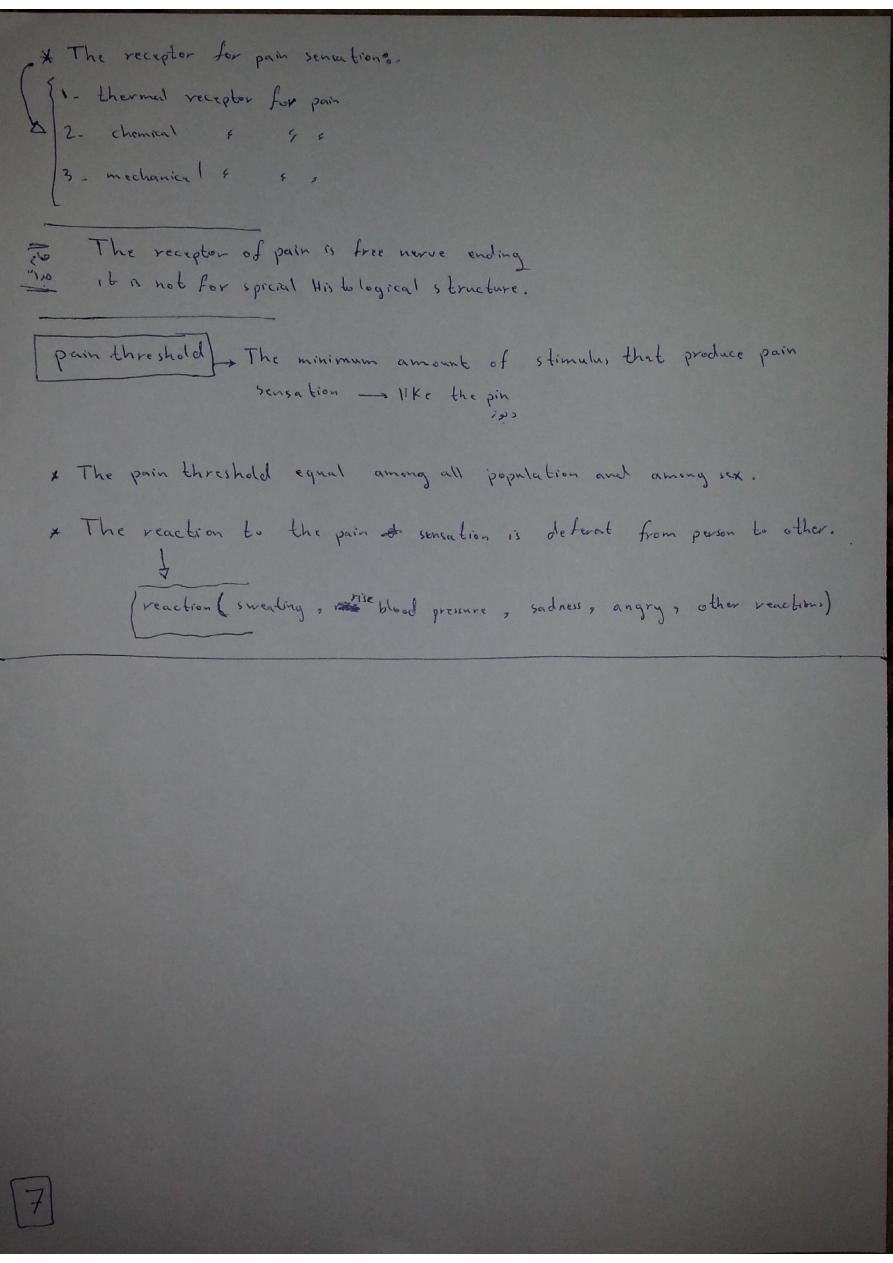 * The receptor for pain sensation:-
1- thermal receptor for pain
2- chemical 〃 〃 〃
3- mechanical 〃 〃 〃
The receptor of pain is free nerve ending
it is not for spicial Histological structure.
pain threshold → The minimum amount of stimulus that produce pain
sensation → like the pin
دبوز
* The pain threshold equal among all population and among sex.
* The reaction to the pain sensation is deferat from person to other.
reaction ( sweating , rise blood pressure , sadness , angry , other reactions)
7